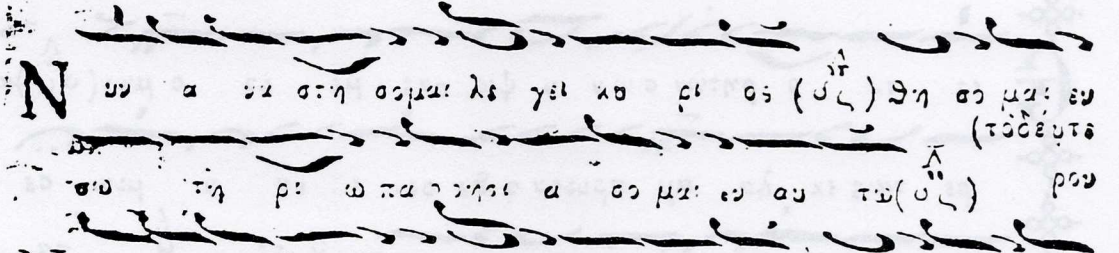 Νυν α να στη σομαι λε γει κυ ρι ος (υζ) θη σο μαι εν
(το δεύτε
σω τη ρι ω παρ ρησι α σο μαι εν αυ τω (υζ) ρου